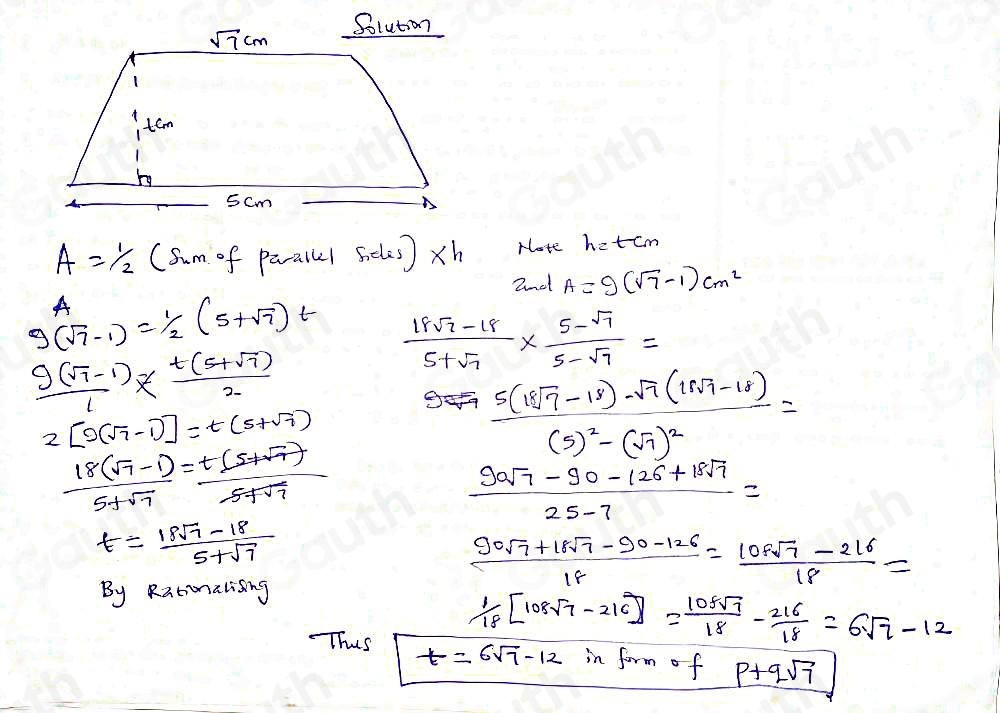 Solution
√7 cm
t cm
5 cm
A = 1/2 (Sum of parallel sides) × h
Note h = t cm
and A = 9(√7-1) cm²
A
9(√7-1) = 1/2 (5+√7) t
9(√7-1)/1 × t(5+√7)/2
2[9(√7-1)] = t(5+√7)
18(√7-1)/5+√7 = t(5+√7)/5+√7
t = 18√7-18/5+√7
By Rationalising
18√7-18/5+√7 × 5-√7/5-√7 =
5(18√7-18)-√7(18√7-18)/(5)²-(√7)² =
90√7-90-126+18√7/25-7 =
90√7+18√7-90-126/18 = 108√7-216/18 =
1/18 [108√7-216] = 108√7/18 - 216/18 = 6√7-12
Thus t = 6√7-12 in form of p+q√7